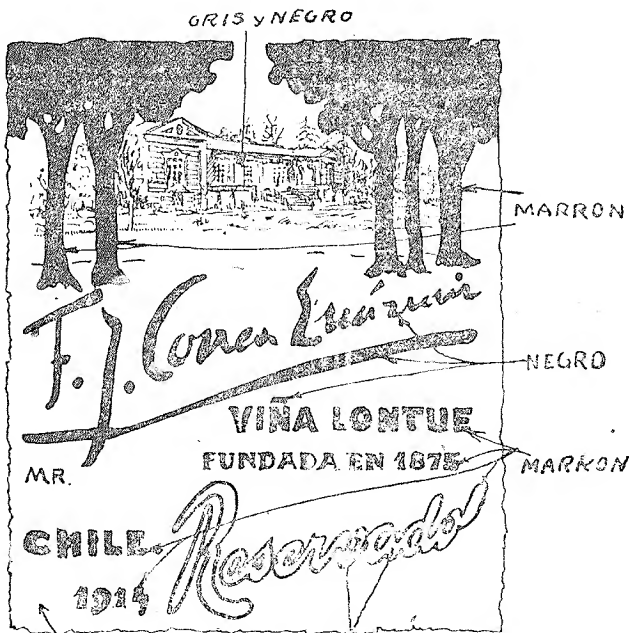 GRIS y NEGRO
MARRON
F. J. Correa Errázuriz
NEGRO
VIÑA LONTUE
FUNDADA EN 1875
MARRON
MR.
CHILE.
Reservado
1914